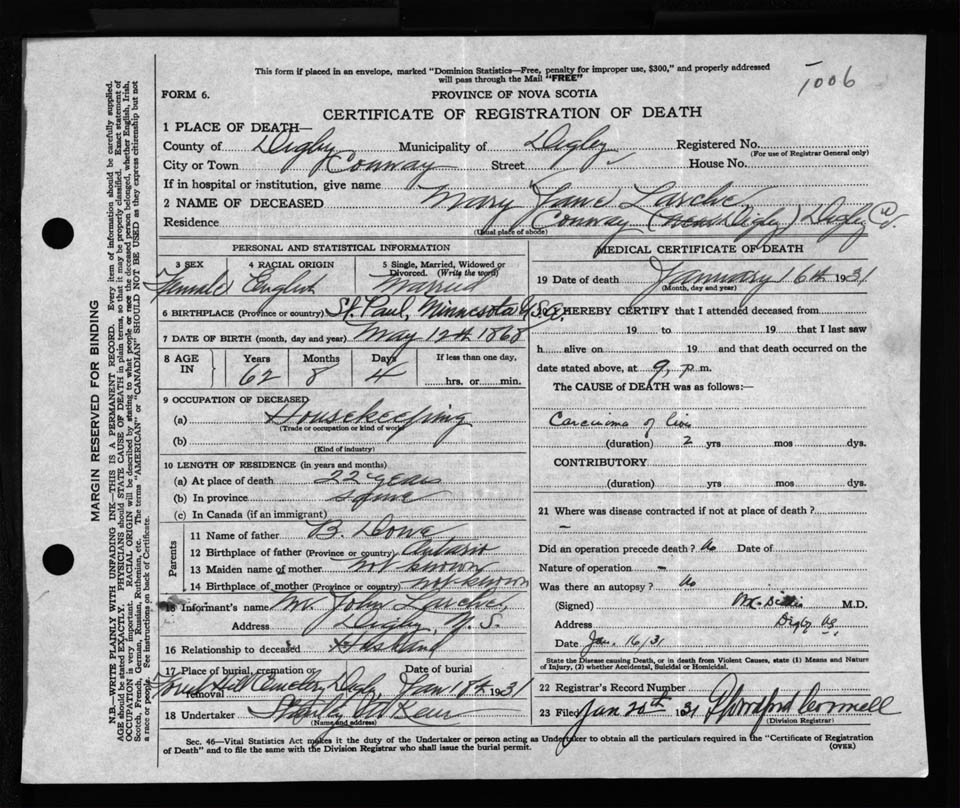 This form if placed in an envelope, marked "Dominion Statistics—Free, penalty for improper use, $300," and properly addressed
will pass through the Mail "FREE"
1006
FORM 6.
PROVINCE OF NOVA SCOTIA
CERTIFICATE OF REGISTRATION OF DEATH
1 PLACE OF DEATH—
County of Digby Municipality of Digby Registered No.
(For use of Registrar General only)
City or Town Conway Street House No.
If in hospital or institution, give name
2 NAME OF DECEASED Mary Jane
Residence Conway (near Digby) Digby Co.
(Usual place of abode)
PERSONAL AND STATISTICAL INFORMATION
3 SEX 4 RACIAL ORIGIN 5 Single, Married, Widowed or Divorced. (Write the word)
Female English Married
6 BIRTHPLACE (Province or country) St. Paul, Minnesota U.S.A.
7 DATE OF BIRTH (month, day and year) May 12th 1868
8 AGE IN Years Months Days If less than one day,
62 8 4 hrs. or min.
9 OCCUPATION OF DECEASED
(a) Housekeeping
(Trade or occupation or kind of work)
(b)
(Kind of industry)
10 LENGTH OF RESIDENCE (in years and months)
(a) At place of death 22 years
(b) In province same
(c) In Canada (if an immigrant)
Parents
11 Name of father B. Dowe
12 Birthplace of father (Province or country) Ontario
13 Maiden name of mother not known
14 Birthplace of mother (Province or country) not known
15 Informant's name Mr. John
Address Digby, N.S.
16 Relationship to deceased Husband
17 Place of burial, cremation or removal Date of burial
Forest Hill Cemetery Digby Jan 18th 1931
18 Undertaker Stanley
(Name and address)
MEDICAL CERTIFICATE OF DEATH
19 Date of death January 16th 1931
(Month, day and year)
20 I HEREBY CERTIFY that I attended deceased from
19 to 19 that I last saw
h alive on 19 and that death occurred on the
date stated above, at 9 p.m.
The CAUSE of DEATH was as follows:—
Carcinoma of liver
(duration) 2 yrs mos dys.
CONTRIBUTORY
(duration) yrs mos dys.
21 Where was disease contracted if not at place of death?
—
Did an operation precede death? No Date of
Nature of operation —
Was there an autopsy? No
(Signed) M.D.
Address Digby NS
Date Jan. 16/31
State the Disease causing Death, or in death from Violent Causes, state (1) Means and Nature
of Injury, (2) whether Accidental, Suicidal or Homicidal.
22 Registrar's Record Number
23 Filed Jan 20th 1931
(Division Registrar)
Sec. 46—Vital Statistics Act makes it the duty of the Undertaker or person acting as Undertaker to obtain all the particulars required in the "Certificate of Registration
of Death" and to file the same with the Division Registrar who shall issue the burial permit. (OVER)
MARGIN RESERVED FOR BINDING
N.B.—WRITE PLAINLY WITH UNFADING INK—THIS IS A PERMANENT RECORD. Every item of information should be carefully supplied.
AGE should be stated EXACTLY. PHYSICIANS should STATE CAUSE OF DEATH in plain terms, so that it may be properly classified. Exact statement of
OCCUPATION is very important. RACIAL ORIGIN will be described by stating to what people or race the deceased person belonged, whether English, Irish,
Scotch, French, German, Russian, Ruthenian, etc. The terms "AMERICAN" or "CANADIAN" SHOULD NOT BE USED as they express citizenship but not
a race or people. See instructions on back of Certificate.